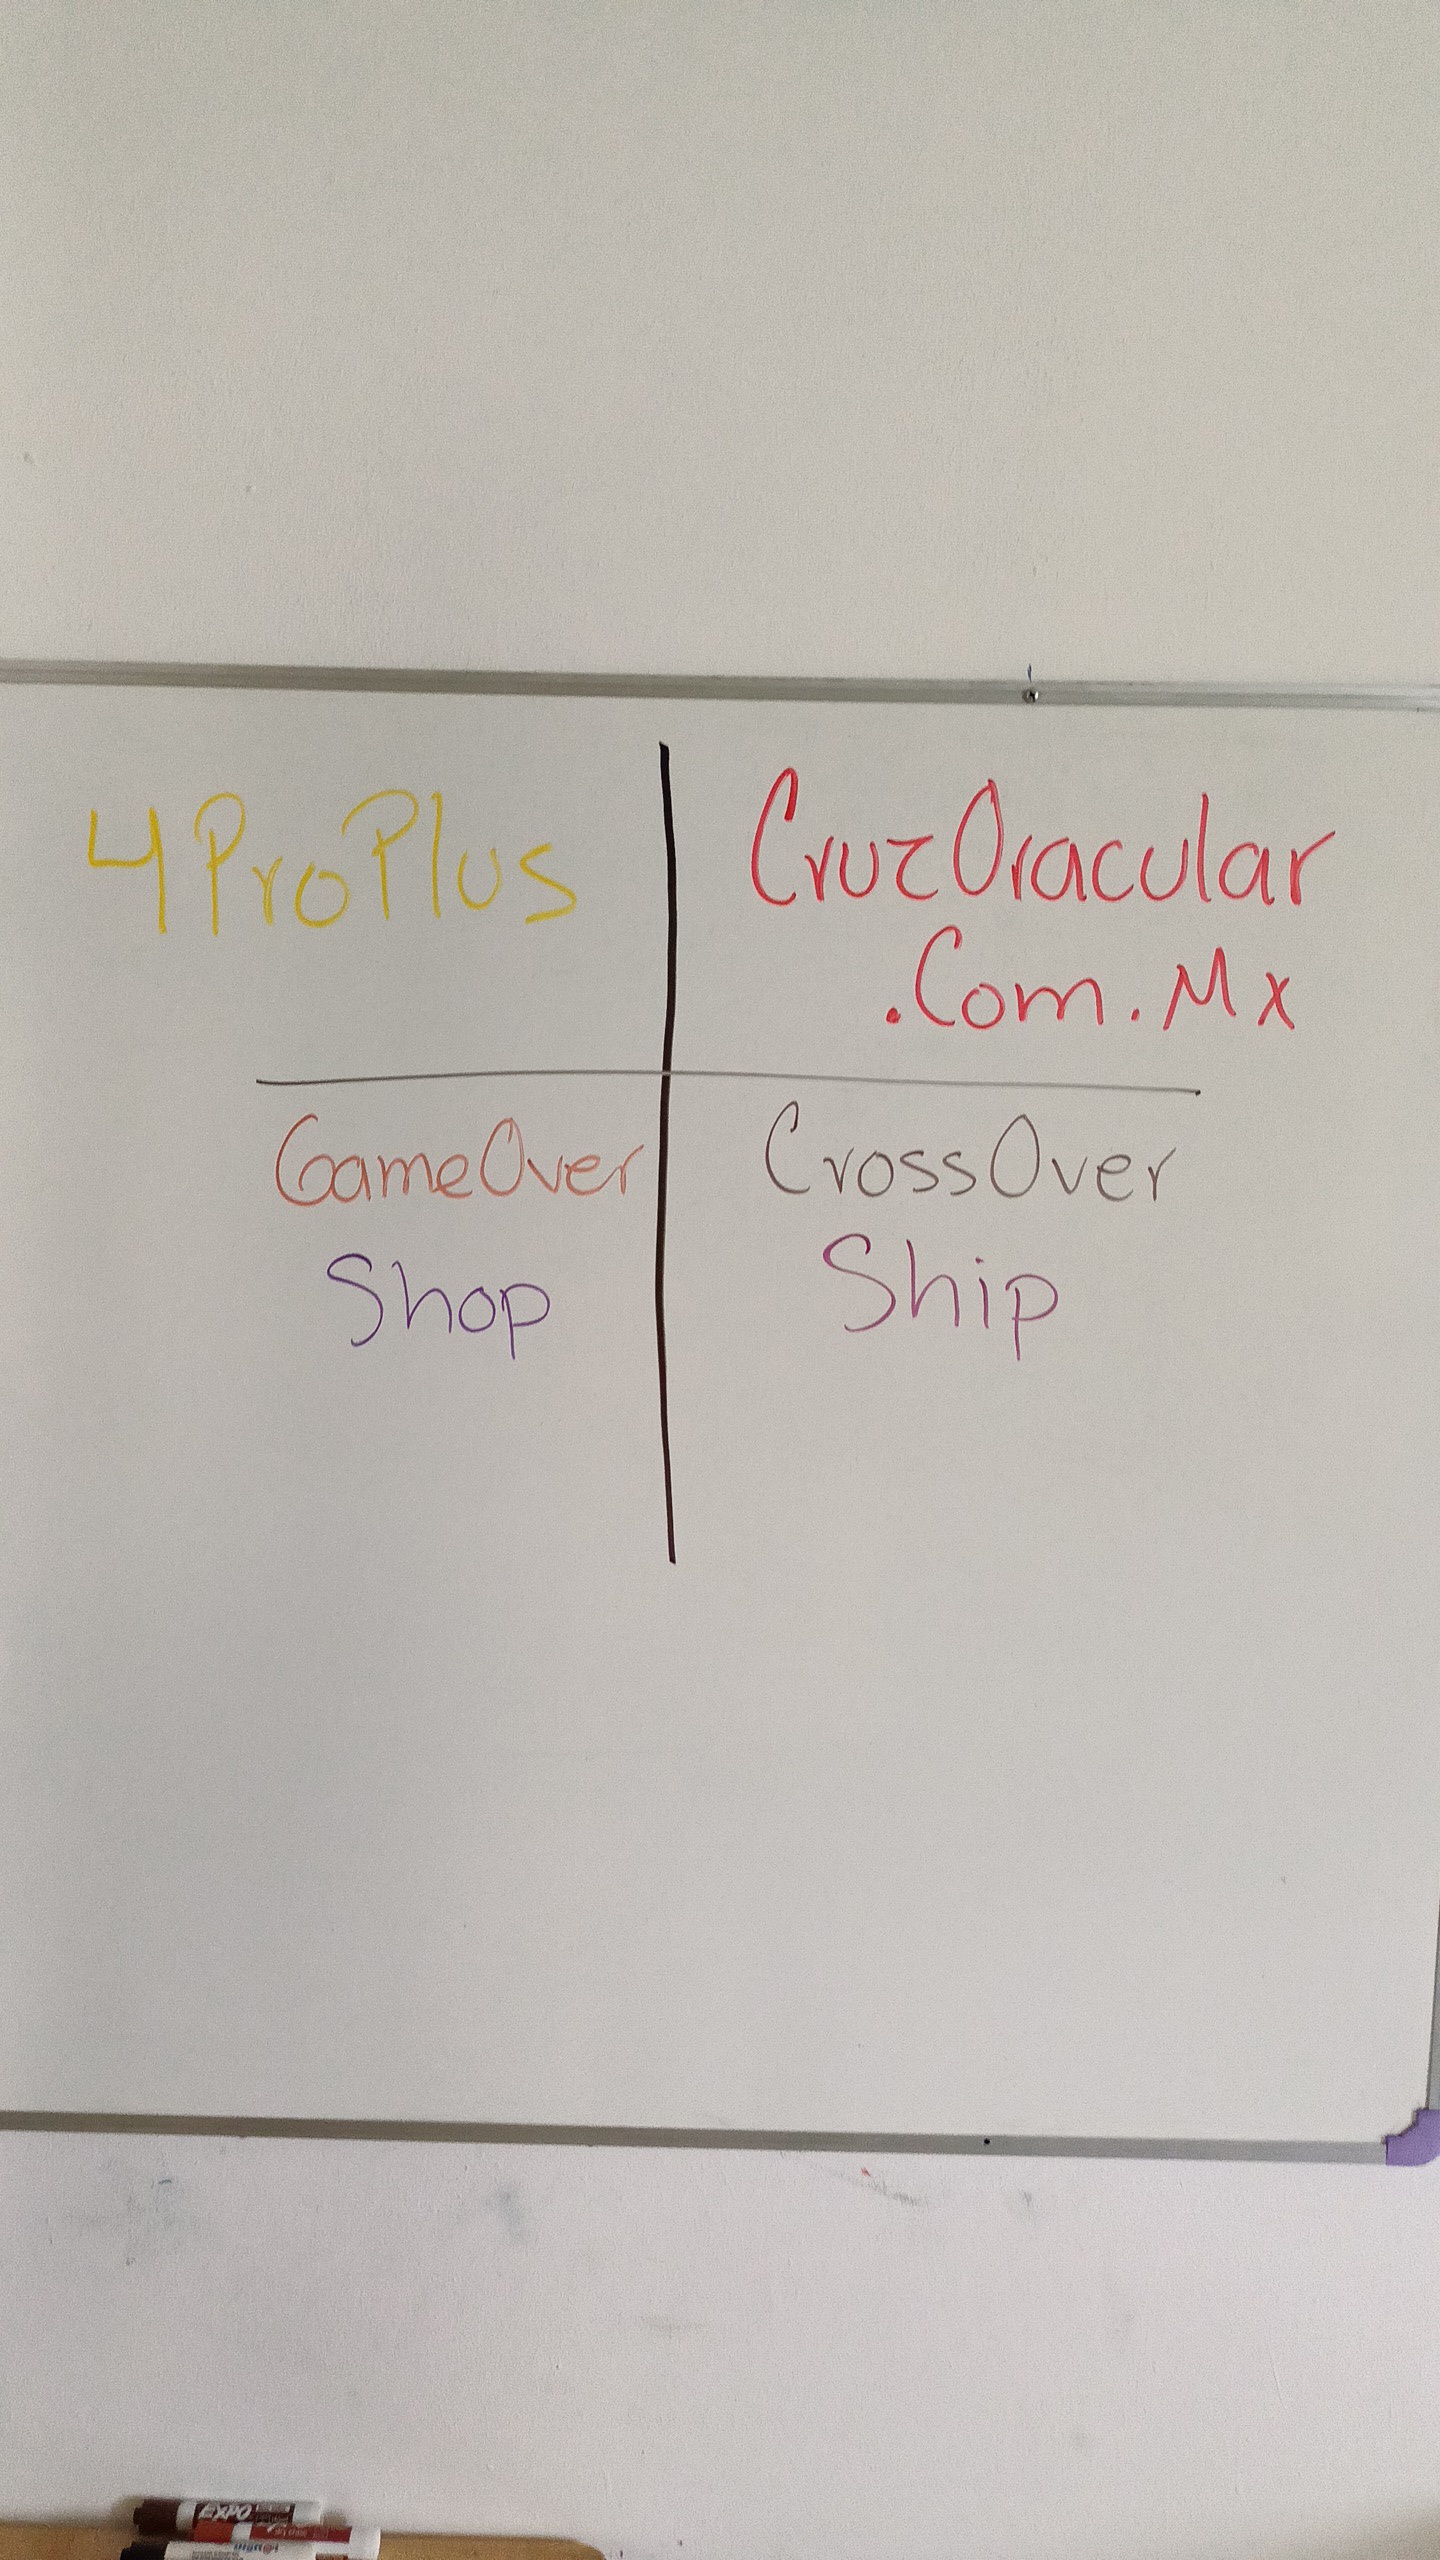 4ProPlus
CruzOracular
.Com.Mx
GameOver
Shop
CrossOver
Ship
EXPO